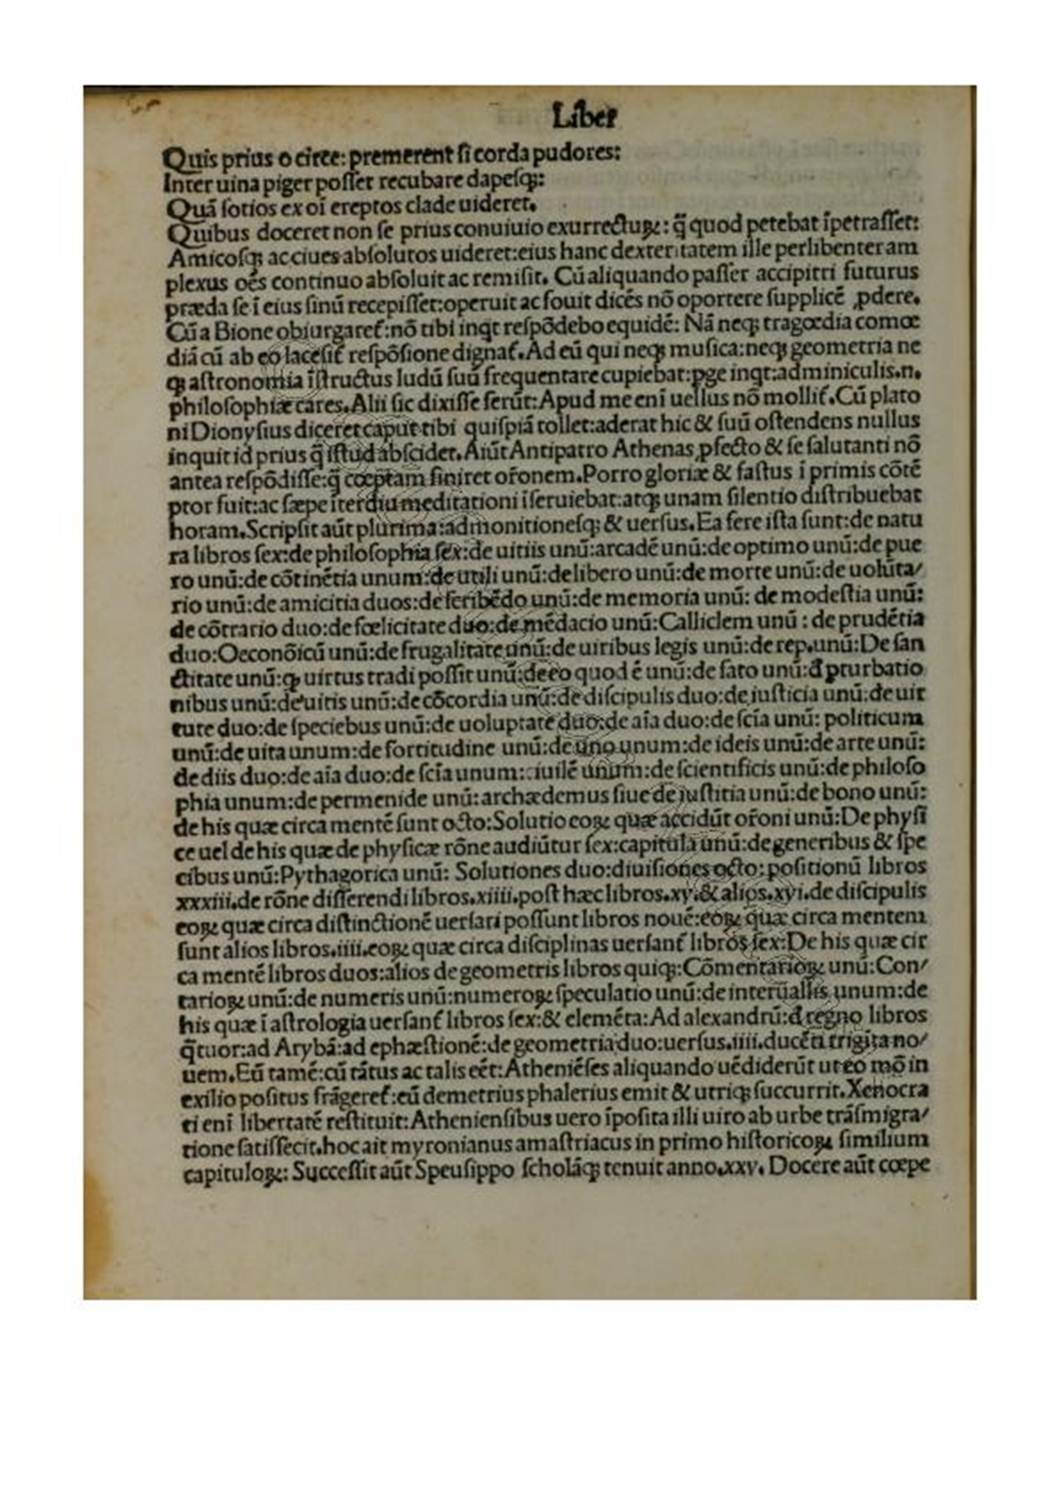 Liber
Quis prius o circe: premerent ſi corda pudores:
Inter uina piger poſſet recubare dapeſqꝫ:
Quã ſotios ex oĩ ereptos clade uideret.
Quibus doceret non ſe prius conuiuio exurrectuꝝ: q̃ quod petebat ĩpetraſſet:
Amicoſqꝫ ac ciues abſolutos uideret: eius hanc dexteritatem ille perlibenter am
plexus oẽs continuo abſoluit ac remiſit. Cũ aliquando paſſer accipitri futurus
præda ſe ĩ eius ſinũ recepiſſet: operuit ac fouit dicẽs nõ oportere ſupplicẽ ꝓdere.
Cũ a Bione obiurgaret᷑: nõ tibi inqt reſpõdebo equidẽ: Nã neqꝫ tragœdia comœ
diã cũ ab eo laceſit᷑ reſpõſione dignat᷑. Ad eũ qui neqꝫ muſica: neqꝫ geometria ne
qꝫ aſtronomia ĩſtructus ludũ ſuũ frequentare cupiebat: ꝑge inqt: adminiculis.n.
philoſophiæ cares. Alii ſic dixiſſe ferũt: Apud me enĩ uellus nõ mollit᷑. Cũ plato
ni Dionyſius diceret caput tibi quiſpiã tollet: aderat hic & ſuũ oſtendens nullus
inquit id prius q̃ iſtud abſcidet. Aiũt Antipatro Athenas ꝓfecto & ſe ſalutanti nõ
antea reſpõdiſſe: q̃ cœptam finiret oronem. Porro gloriæ & faſtus ĩ primis cõtẽ
ptor fuit: ac ſæpe ĩterdiu meditationi ĩſeruiebat: atqꝫ unam ſilentio diſtribuebat
horam. Scripſit aũt plurima: admonitioneſqꝫ & uerſus. Ea fere iſta ſunt: de natu
ra libros ſex: de philoſophia ſex: de uitiis unũ: arcadẽ unũ: de optimo unũ: de pue
ro unũ: de cõtinẽtia unum: de utili unũ: de libero unũ: de morte unũ: de uolũta/
rio unũ: de amicitia duos: de ſcribẽdo unũ: de memoria unũ: de modeſtia unũ:
de cõtrario duo: de fœlicitate duo: de mẽdacio unũ: Calliclem unũ: de prudẽtia
duo: Oeconõicũ unũ: de frugalitate unũ: de uiribus legis unũ: de rep. unũ: De ſan
ctitate unũ: ꝙ uirtus tradi poſſit unũ: de eo quod ẽ unũ: de fato unũ: đ ꝑturbatio
nibus unũ: de uitis unũ: de cõcordia unũ: de diſcipulis duo: de iuſticia unũ: de uir
tute duo: de ſpeciebus unũ: de uoluptate duo: de aĩa duo: de ſcĩa unũ: politicum
unũ: de uita unum: de fortitudine unũ: de uno unum: de ideis unũ: de arte unũ:
de diis duo: de aĩa duo: de ſcĩa unum: ciuilẽ unum: de ſcientificis unũ: de philoſo
phia unum: de permenide unũ: archædemus ſiue de iuſtitia unũ: de bono unũ:
de his quæ circa mentẽ ſunt octo: Solutio eoꝝ quæ accidũt oroni unũ: De phyſi
ce uel de his quæ de phyſicæ rõne audiũtur ſex: capitula unũ: de generibus & ſpe
cibus unũ: Pythagorica unũ: Solutiones duo: diuiſiones octo: poſitionũ libros
xxxiii. de rõne differendi libros. xiiii. poſt hæc libros. xv. & alios. xvi. de diſcipulis
eoꝝ quæ circa diſtinctionẽ uerſari poſſunt libros nouẽ: eoꝝ quæ circa mentem
ſunt alios libros. iiii. eoꝝ quæ circa diſciplinas uerſant᷑ libros ſex: De his quæ cir
ca mentẽ libros duos: alios de geometris libros quiqꝫ: Cõmentarioꝝ unũ: Con/
tarioꝝ unũ: de numeris unũ: numeroꝝ ſpeculatio unũ: de interuallis unum: de
his quæ ĩ aſtrologia uerſant᷑ libros ſex: & elemẽta: Ad alexandrũ: đ regno libros
q̃tuor: ad Arybã: ad ephæſtionẽ: de geometria duo: uerſus. iiii. ducẽti trigĩta no/
uem. Eũ tamẽ: cũ tãtus ac talis eẽt: Atheniẽſes aliquando uẽdiderũt ut eo mõ in
exilio poſitus frãgeret᷑: eũ demetrius phalerius emit & utriqꝫ ſuccurrit. Xenocra
ti enĩ libertatẽ reſtituit: Athenienſibus uero ĩpoſita illi uiro ab urbe trãſmigra/
tione ſatiſfecit. hoc ait myronianus amaſtriacus in primo hiſtoricoꝝ ſimilium
capituloꝝ: Succeſſit aũt Speuſippo ſcholãqꝫ tenuit anno. xxv. Docere aũt cœpe